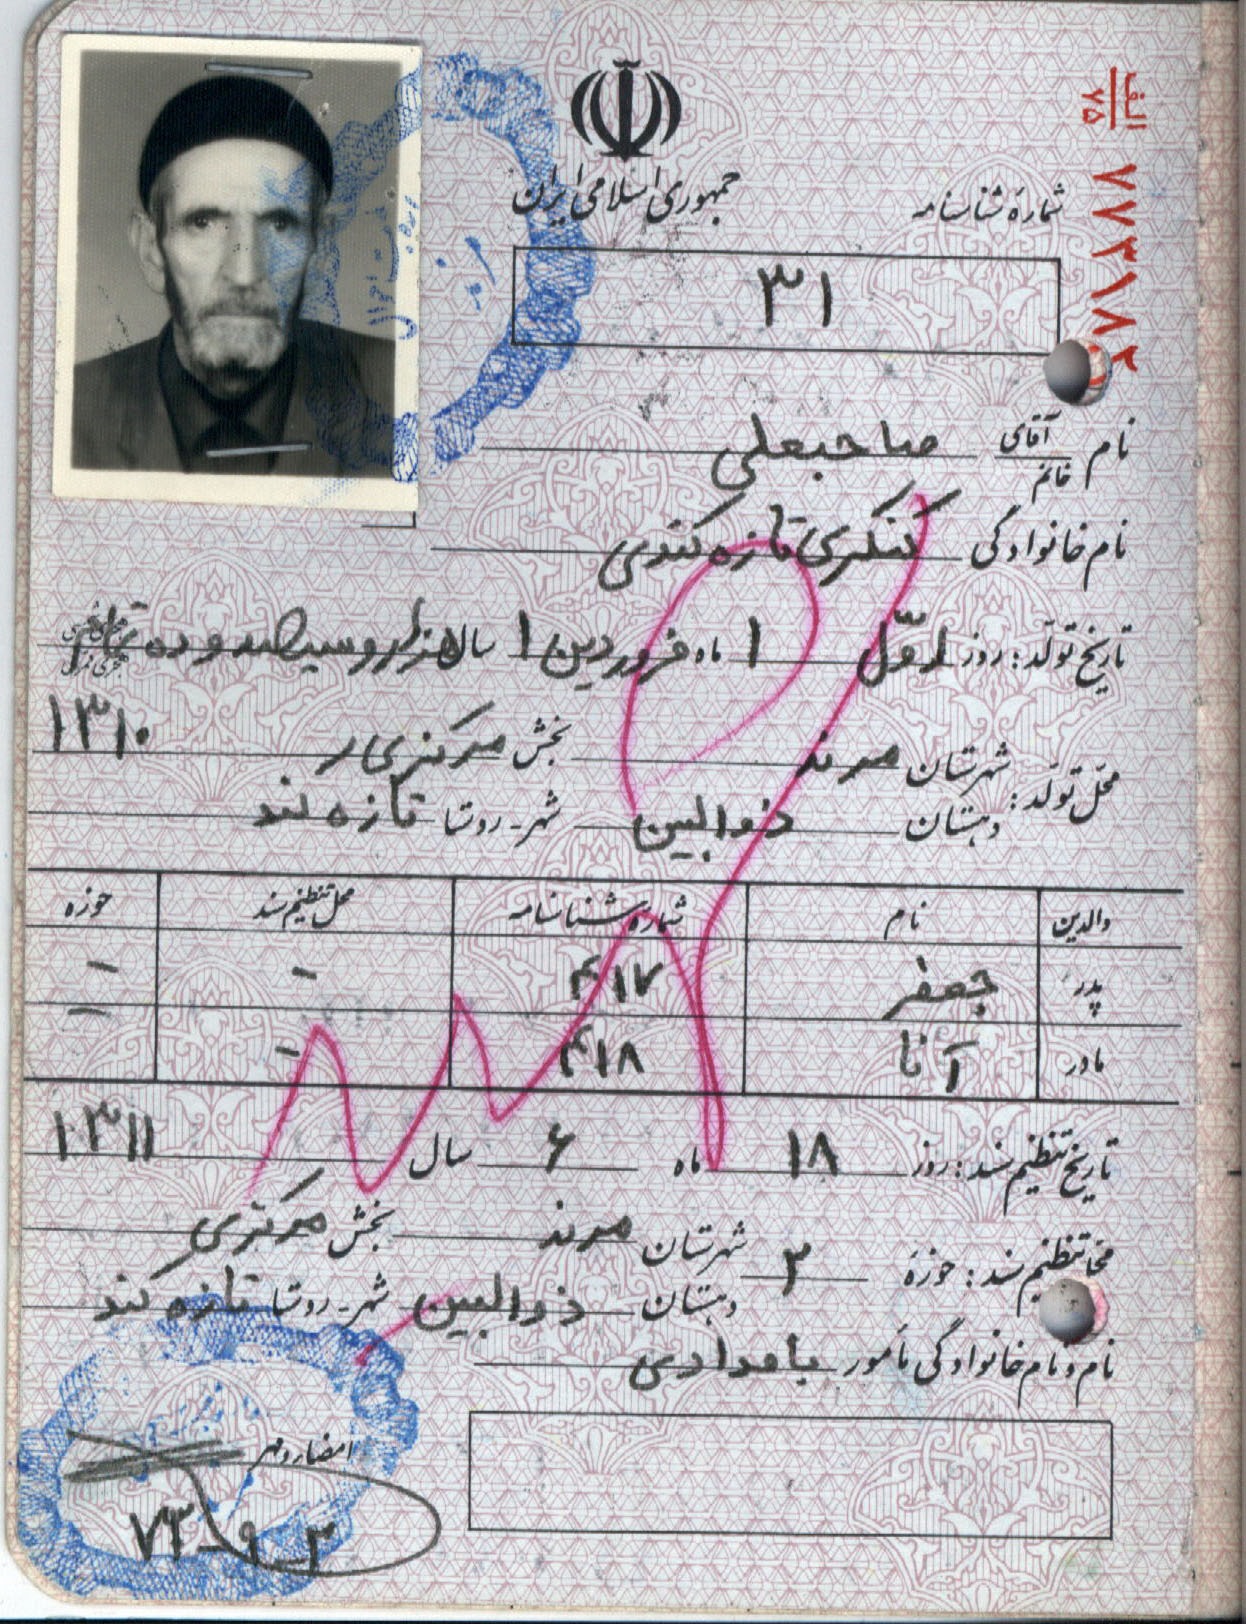 الف
۷۵
۷۷۳۱۸۰۲
جمهوری اسلامی ایران
شمارهٔ شناسنامه
۳۱
نام آقای خانم صاحبعلی
نام خانوادگی تازه کندی
تاریخ تولد: روز اوّل ۱ ماه فروردین ۱ سال هزار و سیصد و ده
۱۳۱۰
محل تولد: شهرستان مرند بخش مرکزی
دهستان ذوالبین شهر - روستا تازه کند
والدین نام شماره شناسنامه محل تنظیم سند حوزه
پدر جعفر ۴۱۷ - -
مادر آنا ۴۱۸ - -
تاریخ تنظیم سند: روز ۱۸ ماه ۶ سال ۱۳۱۱
محل تنظیم سند: حوزهٔ ۲ شهرستان مرند بخش مرکزی
دهستان ذوالبین شهر - روستا تازه کند
نام و نام خانوادگی مأمور بامدادی
امضاء و مهر
۷۳-۹-۳